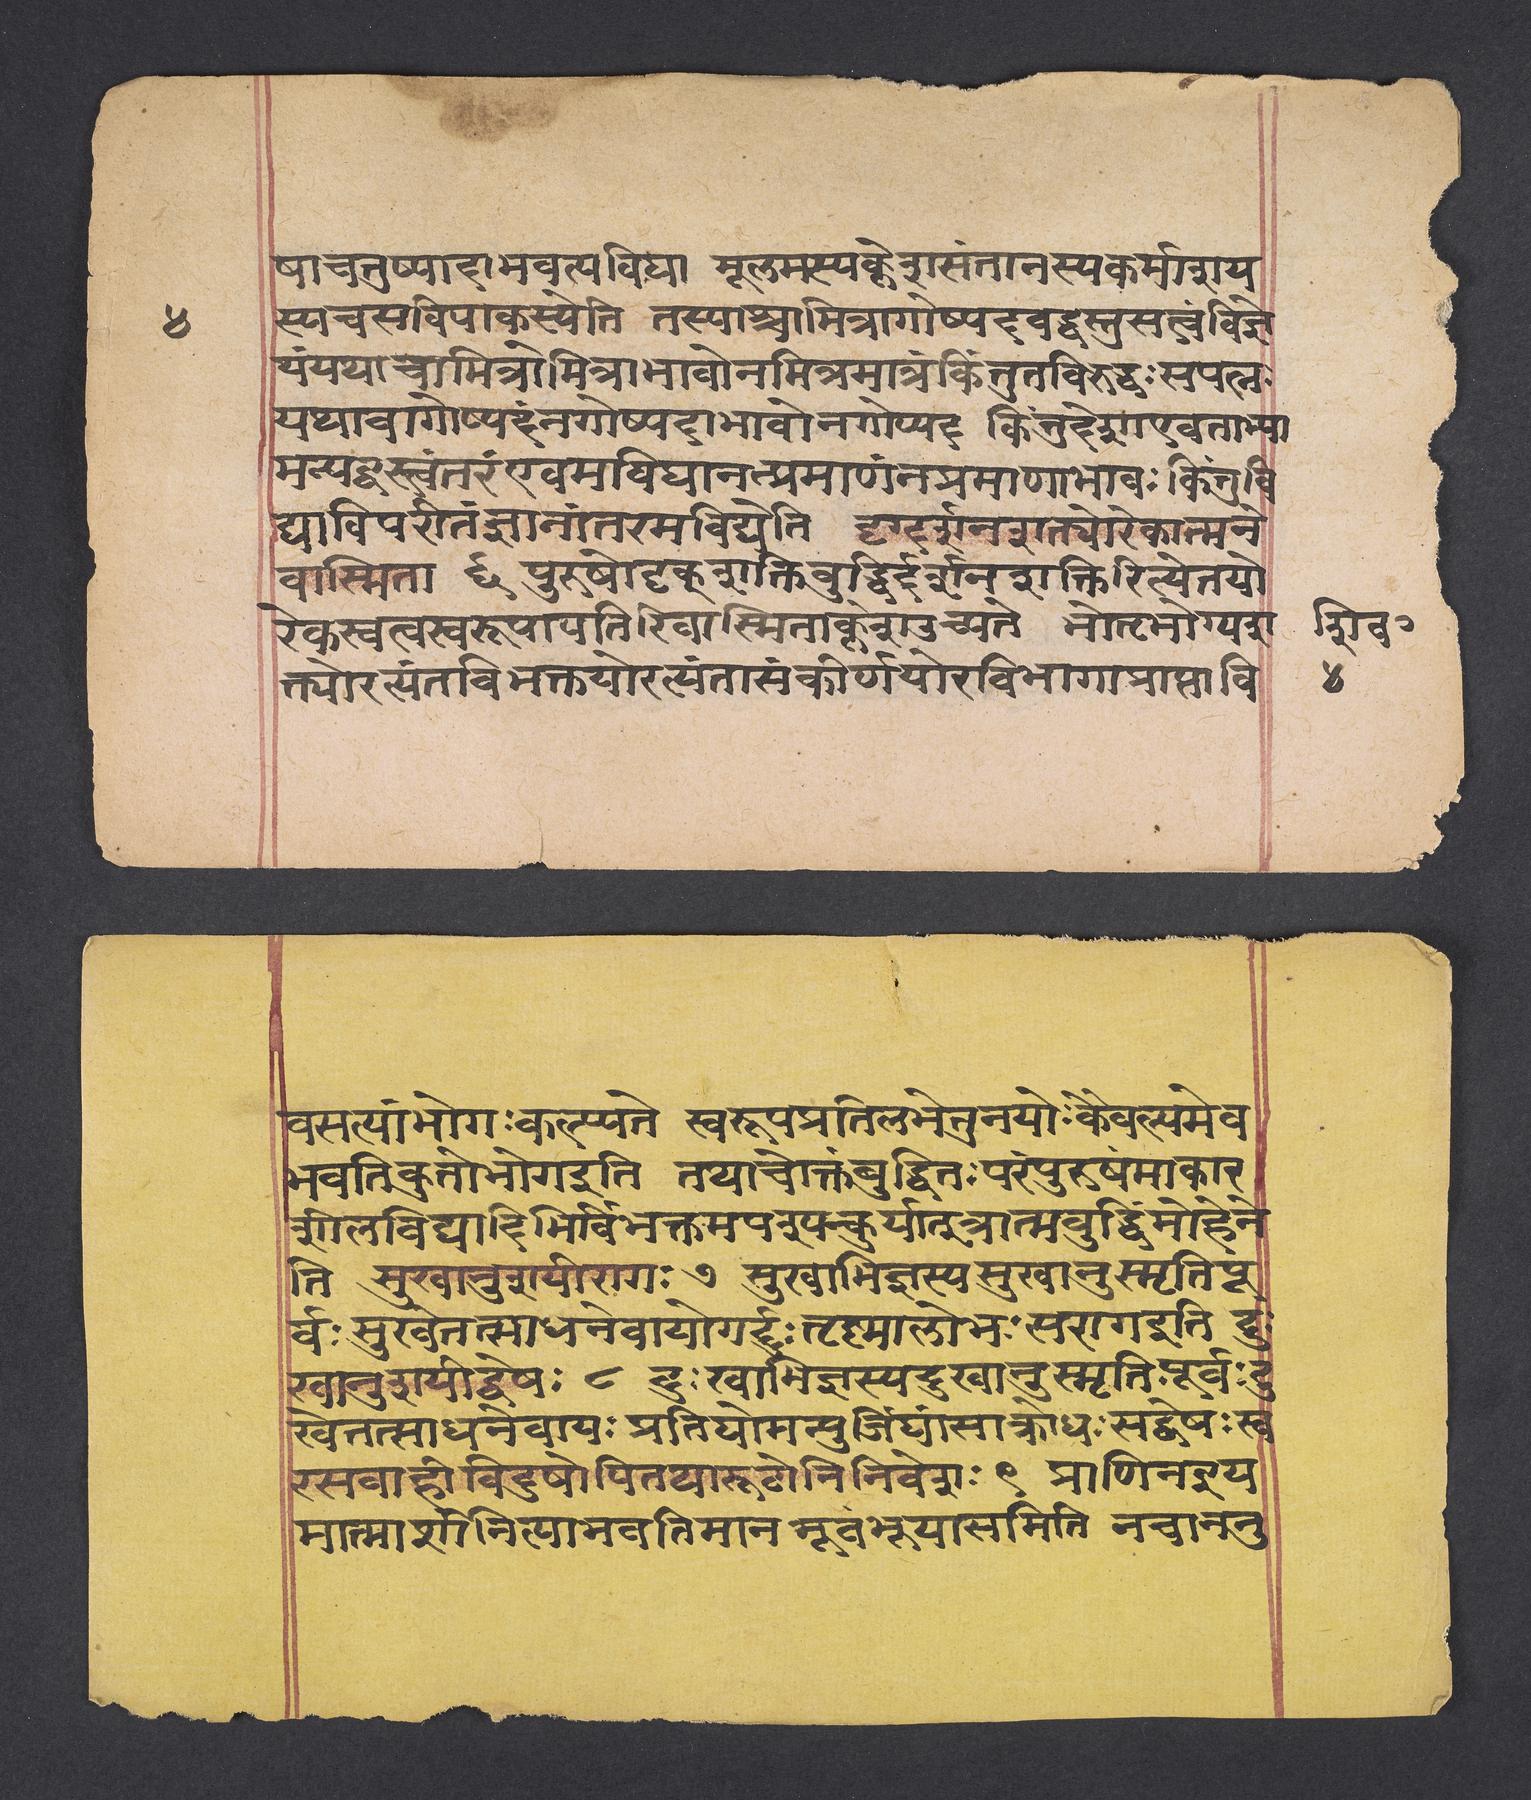 षाचतुष्पादाभवत्यविद्या मूलमस्यक्लेशसंतानस्यकर्माशय
४
स्यचसविपाकस्येति तस्याश्चामित्रागोष्पदवद्वस्तुसत्त्वंविज्ञे
यंयथाचामित्रोमित्राभावोनमित्रमात्रंकिंतुतविरुद्धःसपत्नः
यथावागोष्पदंनगोष्पदाभावोनगोप्यद किंतुदेशएवताभ्या
मन्यद्वस्त्वंतरंएवमविद्यानत्प्रमाणंनप्रमाणाभावः किंतुवि
द्याविपरीतंज्ञानांतरमविद्येति दृग्दर्शनशत्त्योरेकात्मने
वास्मिता ६ पुरुषोदृक्शक्तिबुद्धिर्दर्शनशक्तिरित्येतयो
रेकस्वत्वस्वरूपापतिरिवास्मिताक्लेशउच्यते भोतृभोग्यश
त्त्योरत्यंतविभक्तयोरत्यंतासंकीर्णयोरविभागाप्राप्तावि
शिव॰
४
वसत्यांभोगःकल्प्यते स्वरूपप्रतिलभेतुनयोःकैवल्यमेव
भवतिकुतोभोगइति तथाचोक्तंबुद्धितःपरंपुरुषंमाकार
शीलविद्यादिभिर्विभक्तमपश्पन्कुर्यातत्रात्मबुद्धिंमोहेने
ति सुखानुशयीरागः ७ सुखाभिज्ञस्यसुखानुस्मृतिपू
र्वःसुखेतत्साधनेवायोगर्द्धःतृष्मालोभःसरागइति दुः
खानुशयीद्वेषः ८ दुःखाभिज्ञस्यदुखानुस्मृतिःपूर्वःदु
खेतत्साधनेवायः प्रतिघोमन्युर्जिघांसाक्रोधःसद्वेषःस्व
रसवाहीविदुषोपितथारूढोनिनिवेशः ९ प्राणिनइय
मात्माशीनित्याभवतिमान भूवंभूयासमिति नचाननु